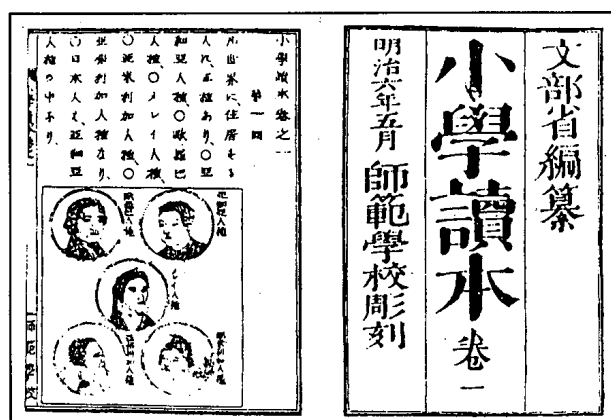 文部省編纂
小學讀本 卷一
明治六年五月 師範學校彫刻
小學讀本卷之一
第一回
凡世界に、住居する
人に、五種あり、○亞
細亞人種、○歐羅巴
人種、○メレイ人種、
○亞米利加人種、○
亞弗利加人種なり、
○日本人は、亞細亞
人種の中なり、
亞細亞人種
歐羅巴人種
メレイ人種
亞米利加人種